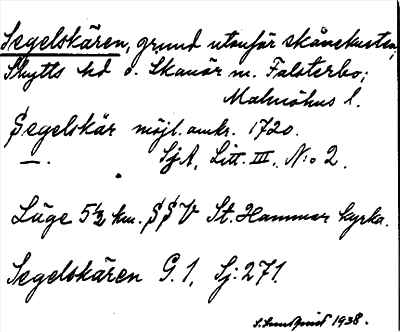 Segelskären, grund utanför skånekusten,
Skytts hd o. Skanör m. Falsterbo;
Malmöhus l.
Segelskär möjl. omkr. 1720.
—. SjA, Litt. III, N:o 2.
Läge 5½ km. SSV St. Hammar kyrka.
Segelskären G. 1, Sj: 271.
1938.